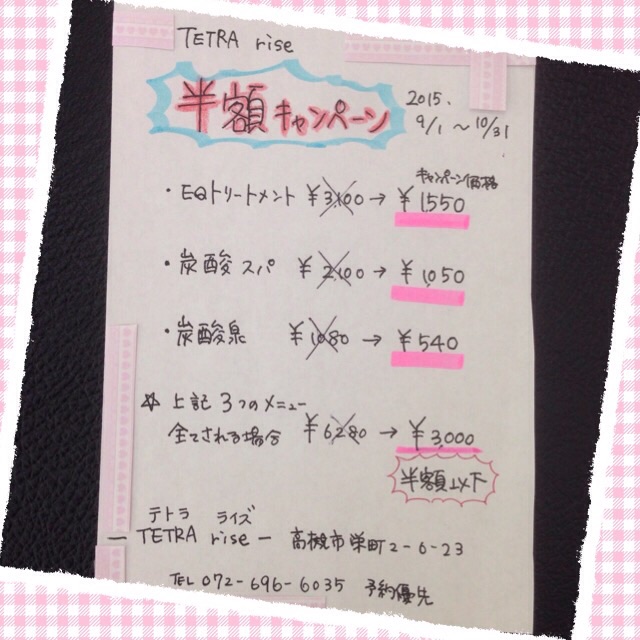 TETRA rise
半額キャンペーン
2015.
9/1 〜 10/31
キャンペーン価格
・EQトリートメント ¥3,100 → ¥1550
・炭酸スパ ¥2,100 → ¥1,050
・炭酸泉 ¥1080 → ¥540
☆ 上記 3つのメニュー
全てされる場合 ¥6,280 → ¥3,000
半額以下
テトラ ライズ
ー TETRA rise ー 高槻市栄町2-6-23
TEL 072-696-6035 予約優先